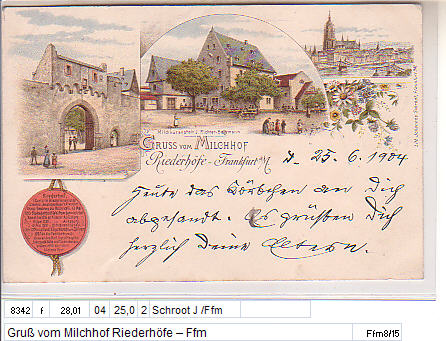 Milchkuranstalt J. Richter-Bachmann
GRUSS vom MILCHHOF
Riederhöfe - Frankfurt a/M.
d. 25. 6. 1904
Heute das Körbchen an Dich
abgesandt. Es grüßen Dich
herzlich Deine Eltern.
8342 f 28,01 04 25,0 2 Schroot J /Ffm
Gruß vom Milchhof Riederhöfe – Ffm
Ffm8/15